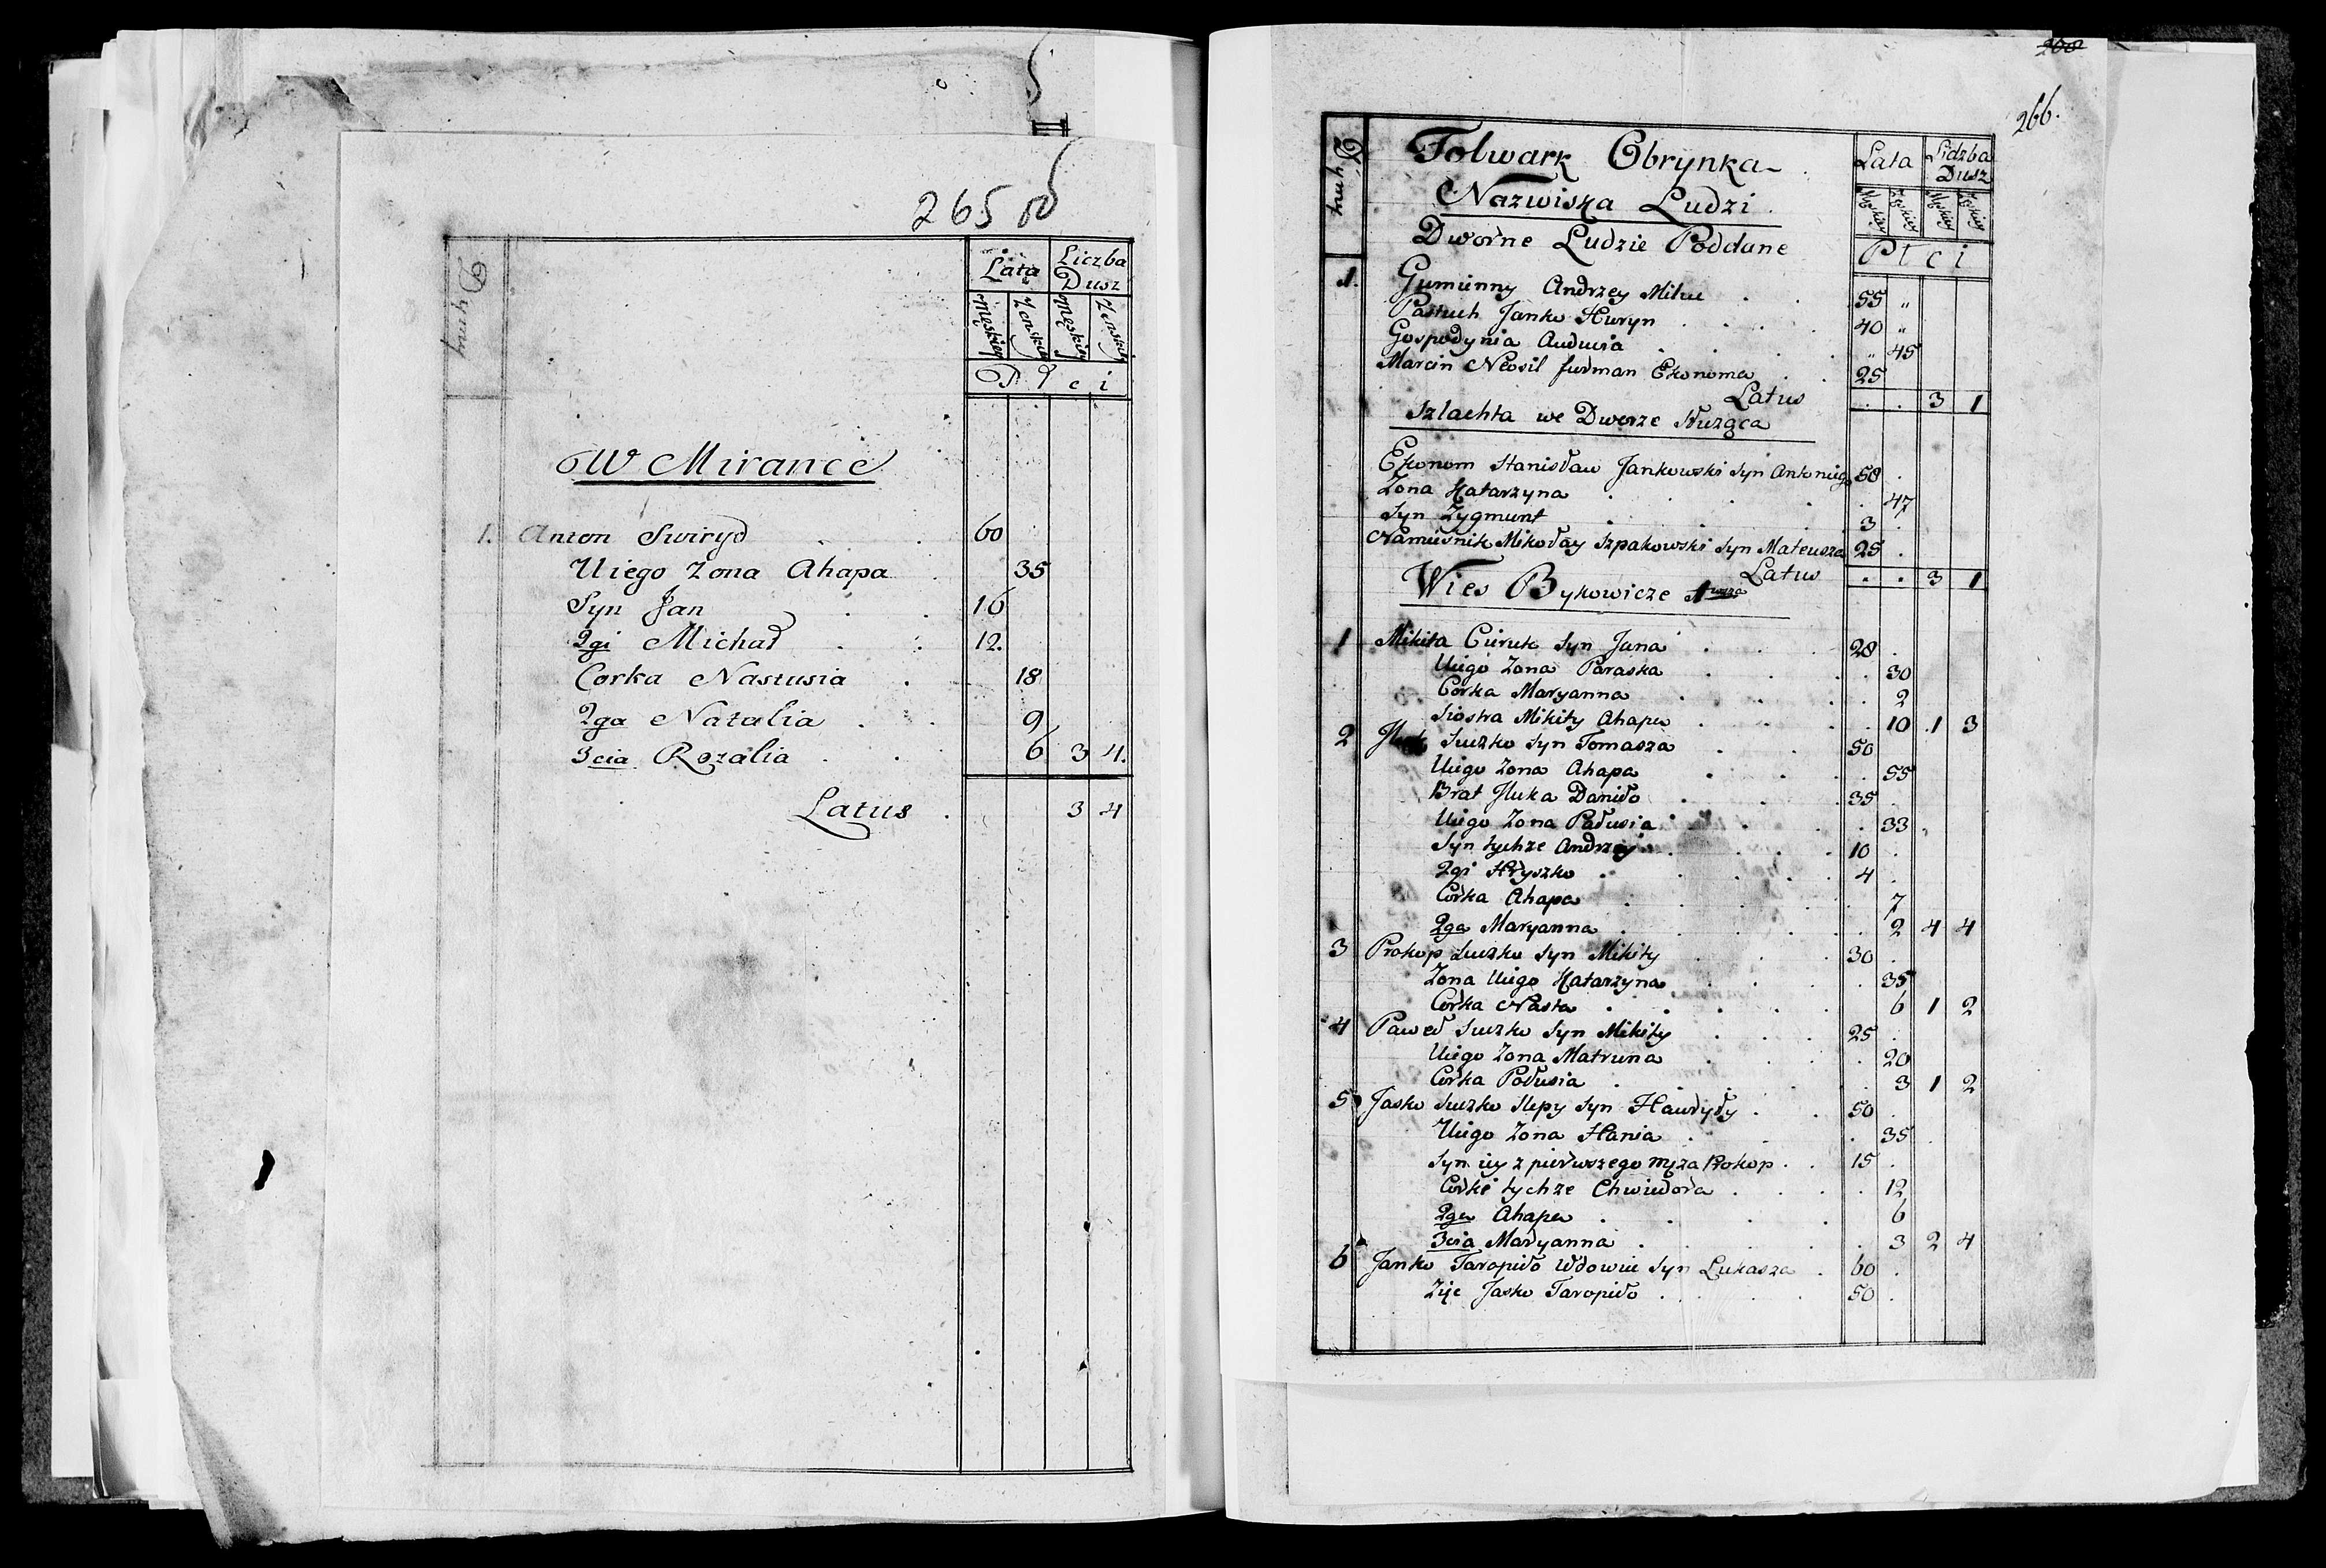 265 об
Dymy
Lata Liczba Dusz
Męskiey Żeńskiey Męskiey Żeńskiey
Płci
W Mirance
1. Anton Swiryd 60
Uiego Zona Ahapa 35
Syn Jan 16
2gi Michał 12.
Corka Nastusia 18
2ga Natalia 9
3cia Rozalia 6 3 4.
Latus 3 4
200
266.
Folwark Obrynka
Dymy
Lata Lidzba Dusz
Nazwiska Ludzi
Męskiey Żeńskiey Męskiey Żeńskiey
Dworne Ludzie Poddane
Płci
1. Gumienny Andrzey 55 "
Pastuch Janko Huryn 40 "
Gospodynia Auducia " 45
Marcin Neosil furman Ekonoma 25
Latus 3 1
Szlachta we Dworze Służąca
Ekonom Stanisław Jankowski Syn Antoniego 58
Zona Katarzyna 47
Syn Zygmunt 3
Namiesnik Mikołay Szpakowski Syn Mateusza 25
Latus 3 1
Wies Bykowicze
1 Mikita Ciruk Syn Jana 28
Uiego Zona Paraska 30
Corka Maryanna 2
Siostra Mikity Ahapa 10 1 3
2 Suszko Syn Tomasza 50
Uiego Zona Ahapa 55
Brat Iluka Daniło 35
Uiego Zona Pałusia 33
Syn tychze Andrzey 10
2gi Hryszko 4
Corka Ahapa 7
2ga Maryanna 2 4 4
3 Prokop Suszko Syn Mikity 30
Zona Uiego Katarzyna 35
Corka Nasta 6 1 2
4 Paweł Suszko Syn Mikity 25
Uiego Zona Matruna 20
Corka Połusia 3 1 2
5 Jasko Suszko Slepy Syn Hawryły 50
Uiego Zona Hania 35
Syn iey z pierwszego męza Prokop 15
Corki tychze Chwiedora 12
2ga Ahapa 6
3cia Maryanna 3 2 4
6 Janko Taropiło Wdowiec Syn Lukasza 60
Zięć Jasko Taropiło 50